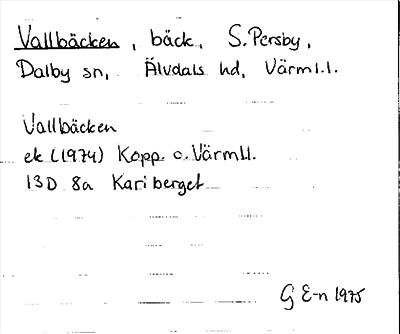 Vallbäcken, bäck, S. Persby,
Dalby sn, Älvdals hd, Värml.l.
Vallbäcken
ek (1974) Kopp. o. Värml.l.
13D 8a Kariberget
G E-n 1975